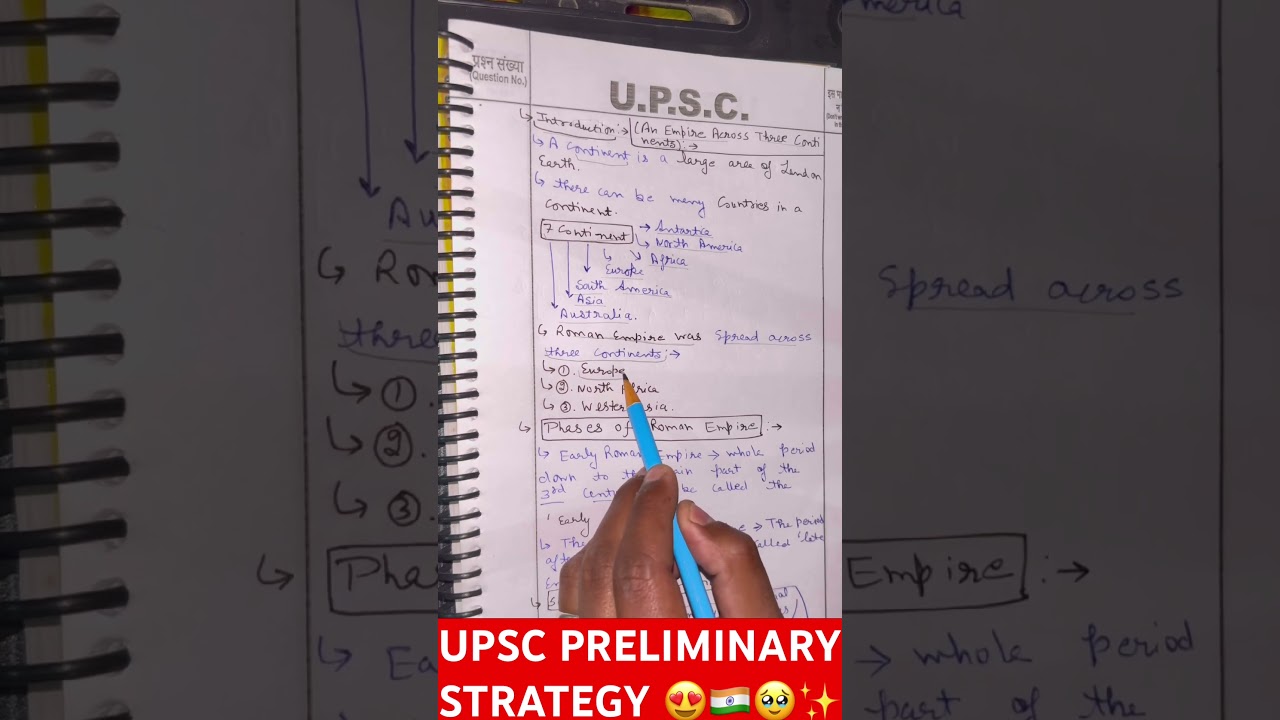 प्रश्न संख्या
(Question No.)
U.P.S.C.
Introduction :→ (An Empire Across Three Conti
nents) :→
A continent is a large area of Land on
Earth.
there can be many Countries in a
Continent.
7 Continent → Antartia
North America
Africa
Europe
South America
Asia
Australia.
Roman Empire was Spread across
three Continents :→
①. Europe
②. North Africa
③. Western Asia.
Phases of Roman Empire :→
Early Roman Empire → whole period
down to the main part of the
3rd be called the
'Early → The period
The called 'late
UPSC PRELIMINARY
STRATEGY 😍🇮🇳🥹✨
merica
Spread across
three
①.
②.
③.
Empire :→
→ whole period
part of the